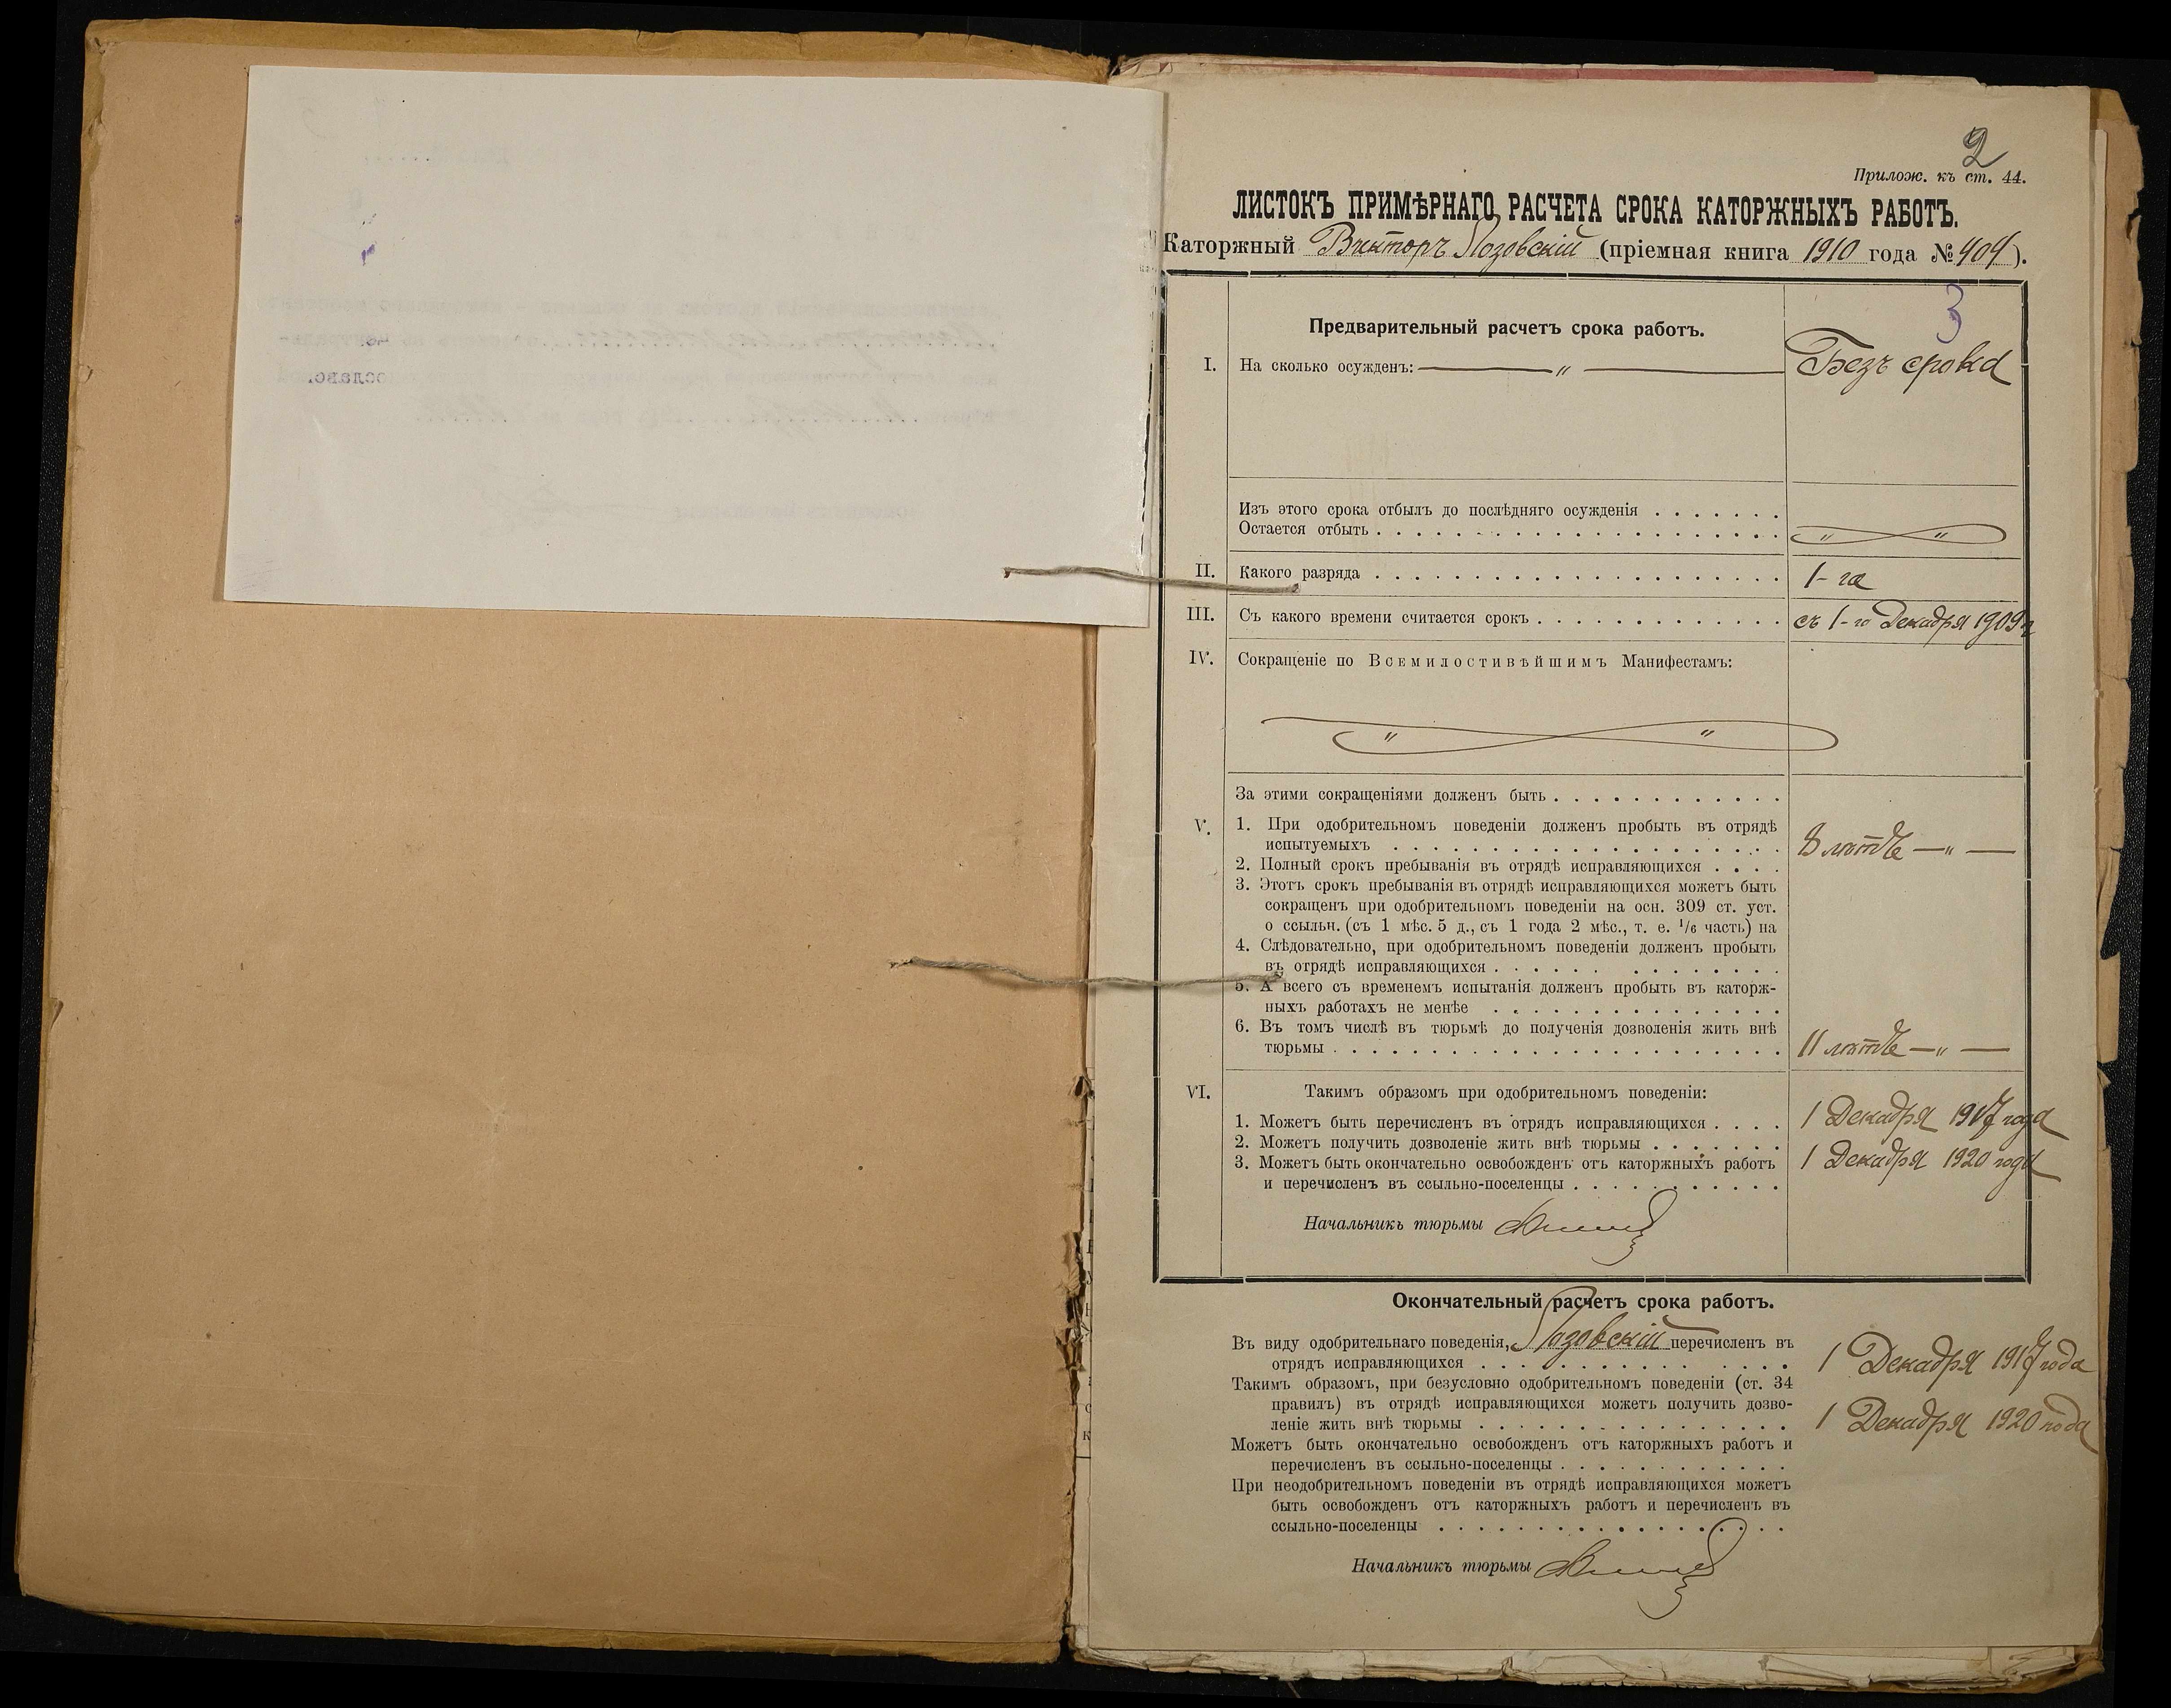 2
Прилож. къ ст. 44.
ЛИСТОКЪ ПРИМѢРНАГО РАСЧЕТА СРОКА КАТОРЖНЫХЪ РАБОТЪ.
Каторжный Викторъ Лозовскій (пріемная книга 1910 года № 404).
3
Предварительный расчетъ срока работъ.
I. На сколько осужденъ: — „ — Безъ срока
Изъ этого срока отбылъ до послѣдняго осужденія . . . . . . .
Остается отбыть . . . . . . . . . . „ „
II. Какого разряда . . . . . . . . . . 1-го
III. Съ какого времени считается срокъ . . . . . . . . . . съ 1-го Декабря 1909 г
IV. Сокращеніе по Всемилостивѣйшимъ Манифестамъ:
„ „
За этими сокращеніями долженъ быть . . . . . . . . . .
V. 1. При одобрительномъ поведеніи долженъ пробыть въ отрядѣ
испытуемыхъ . . . . . . . . . . 8 лѣтъ — „ —
2. Полный срокъ пребыванія въ отрядѣ исправляющихся . . . .
3. Этотъ срокъ пребыванія въ отрядѣ исправляющихся можетъ быть
сокращенъ при одобрительномъ поведеніи на осн. 309 ст. уст.
о ссыльн. (съ 1 мѣс. 5 д., съ 1 года 2 мѣс., т. е. 1/6 часть) на
4. Слѣдовательно, при одобрительномъ поведеніи долженъ пробыть
въ отрядѣ исправляющихся . . . . . . . . . .
5. А всего съ временемъ испытанія долженъ пробыть въ каторж-
ныхъ работахъ не менѣе . . . . . . . . . .
6. Въ томъ числѣ въ тюрьмѣ до полученія дозволенія жить внѣ
тюрьмы . . . . . . . . . . 11 лѣтъ — „ —
VI. Такимъ образомъ при одобрительномъ поведеніи:
1. Можетъ быть перечисленъ въ отрядъ исправляющихся . . . . 1 Декабря 1917 года
2. Можетъ получить дозволеніе жить внѣ тюрьмы . . . . . . .
3. Можетъ быть окончательно освобожденъ отъ каторжныхъ работъ 1 Декабря 1920 года
и перечисленъ въ ссыльно-поселенцы . . . . . . . . . .
Начальникъ тюрьмы
Окончательный расчетъ срока работъ.
Въ виду одобрительнаго поведенія, Лозовскій перечисленъ въ
отрядъ исправляющихся . . . . . . . . . . 1 Декабря 1917 года
Такимъ образомъ, при безусловно одобрительномъ поведеніи (ст. 34
правилъ) въ отрядѣ исправляющихся можетъ получить дозво-
леніе жить внѣ тюрьмы . . . . . . . . . . 1 Декабря 1920 года
Можетъ быть окончательно освобожденъ отъ каторжныхъ работъ и
перечисленъ въ ссыльно-поселенцы . . . . . . . . . .
При неодобрительномъ поведеніи въ отрядѣ исправляющихся можетъ
быть освобожденъ отъ каторжныхъ работъ и перечисленъ въ
ссыльно-поселенцы . . . . . . . . . .
Начальникъ тюрьмы